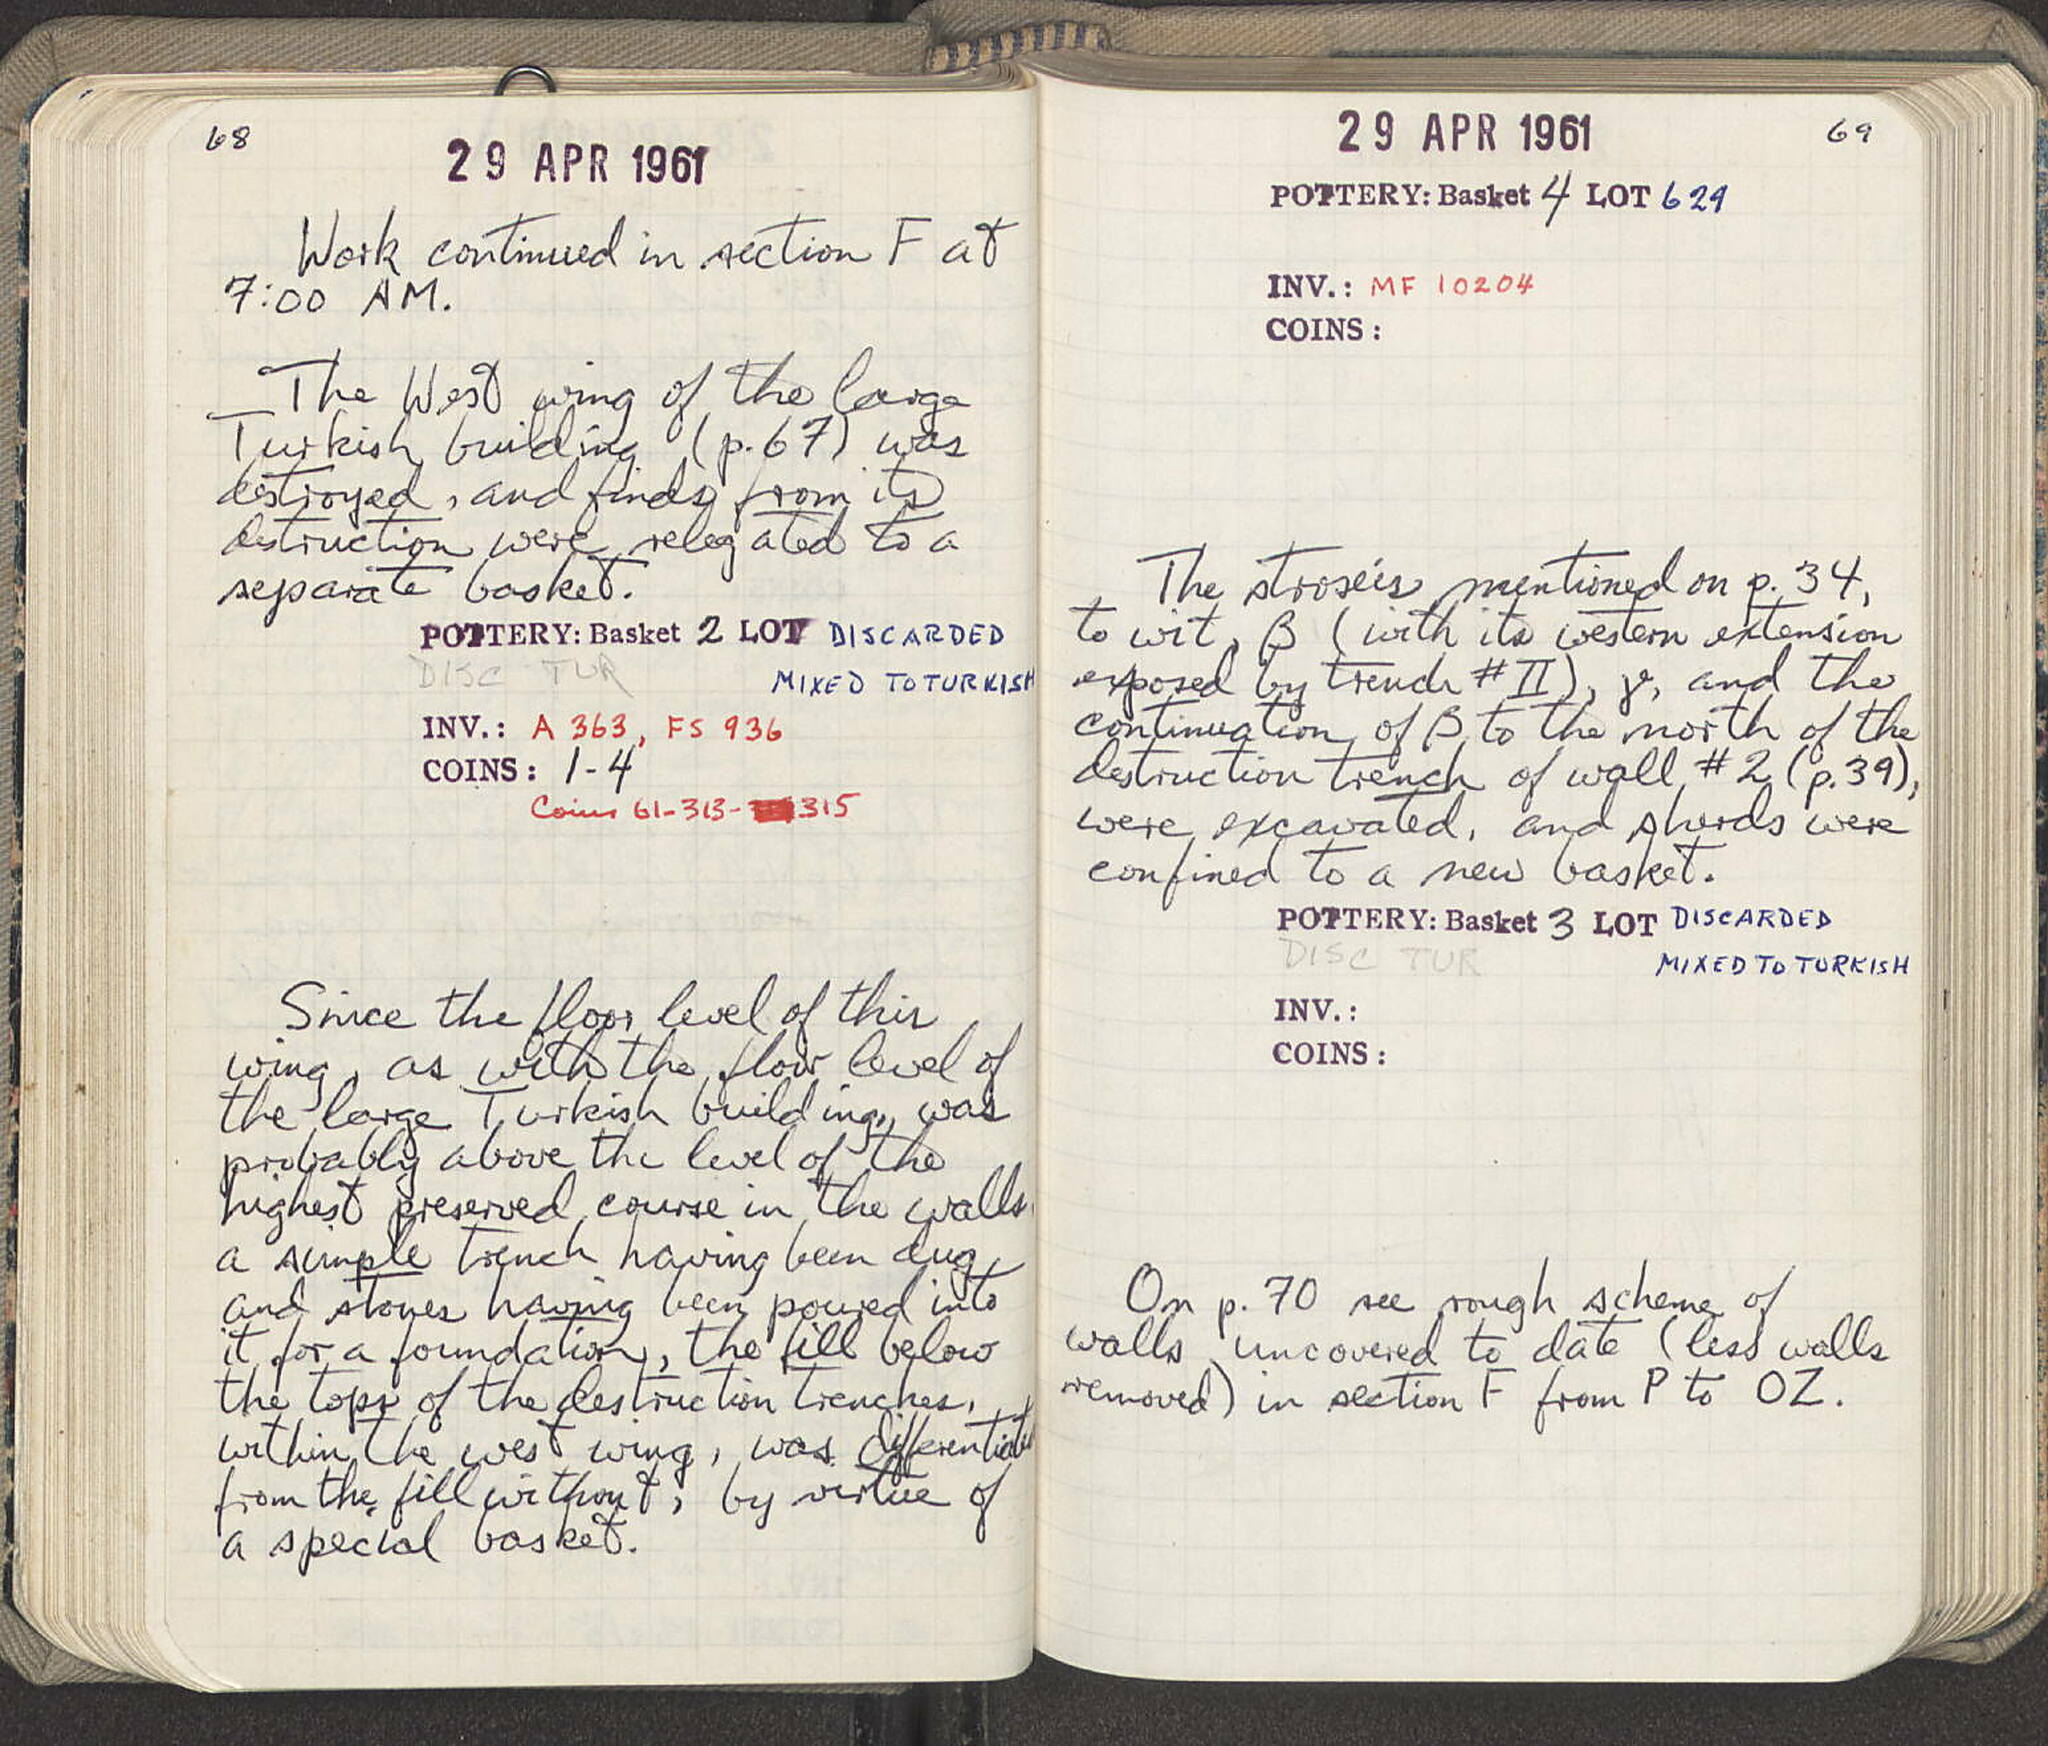 68
29 APR 1961
Work continued in section F at
7:00 AM.
The West wing of the large
Turkish building (p. 67) was
destroyed, and finds from its
destruction were relegated to a
separate basket.
POTTERY: Basket 2 LOT DISCARDED
DISC TUR MIXED TO TURKISH
INV.: A 363, FS 936
COINS: 1-4
Coins 61-313-315
Since the floor level of this
wing, as with the floor level of
the large Turkish building, was
probably above the level of the
highest preserved course in the walls,
a simple trench having been dug,
and stones having been poured into
it for a foundation, the fill below
the tops of the destruction trenches,
within the west wing, was differentiated
from the fill without, by virtue of
a special basket.
29 APR 1961 69
POTTERY: Basket 4 LOT 629
INV.: MF 10204
COINS:
The stroséis mentioned on p. 34,
to wit, β (with its western extension
exposed by trench # II), γ, and the
continuation of β to the north of the
destruction trench of wall #2 (p. 39),
were excavated, and sherds were
confined to a new basket.
POTTERY: Basket 3 LOT DISCARDED
DISC TUR MIXED TO TURKISH
INV.:
COINS:
On p. 70 see rough scheme of
walls uncovered to date (less walls
removed) in section F from P to OZ.